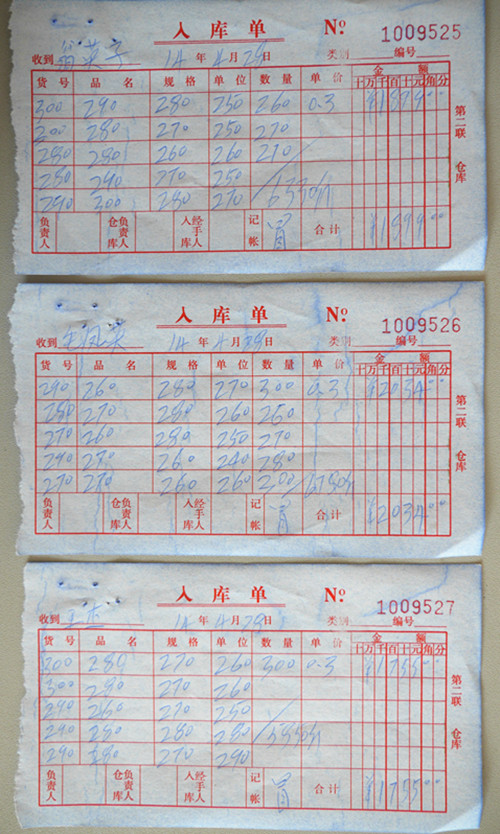 入库单 № 1009525
收到 14年4月28日 类别 编号
货号 品名 规格 单位 数量 单价 金额
十万千百十元角分
300 290 280 250 260 0.3 ¥1899 00
300 280 270 250 270
280 280 260 260 270
280 290 270 250
290 300 280 270 6330斤
负责人 仓库负责人 入库经手人 记帐 合计 ¥1899 00
第二联 仓库
入库单 № 1009526
收到 14年4月28日 类别 编号
货号 品名 规格 单位 数量 单价 金额
十万千百十元角分
290 260 280 270 300 0.3 ¥2034 00
280 270 280 260 260
270 260 280 250 270
290 270 260 240 280
270 270 260 260 300 6780斤
负责人 仓库负责人 入库经手人 记帐 合计 ¥2034 00
第二联 仓库
入库单 № 1009527
收到 王杰 14年4月28日 类别 编号
货号 品名 规格 单位 数量 单价 金额
十万千百十元角分
300 280 270 260 300 0.3 ¥1755 00
300 280 270 260
290 260 270 250
290 280 280 280 5850斤
290 280 270 290
负责人 仓库负责人 入库经手人 记帐 合计 ¥1755 00
第二联 仓库